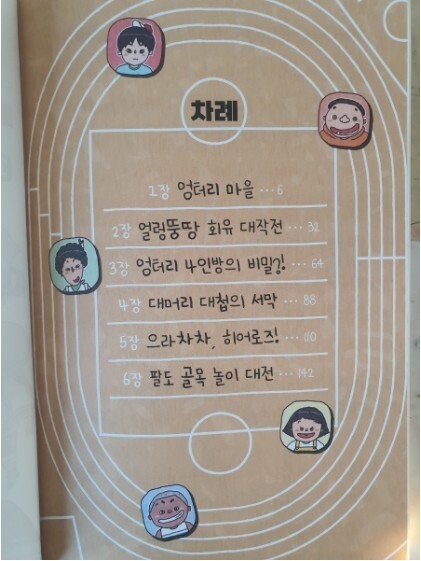 차례
1장 엉터리 마을 ··· 6
2장 얼렁뚱땅 회유 대작전 ··· 32
3장 엉터리 4인방의 비밀?! ··· 64
4장 대머리 대첩의 서막 ··· 88
5장 으라차차, 히어로즈! ··· 110
6장 팔도 골목 놀이 대전 ··· 142